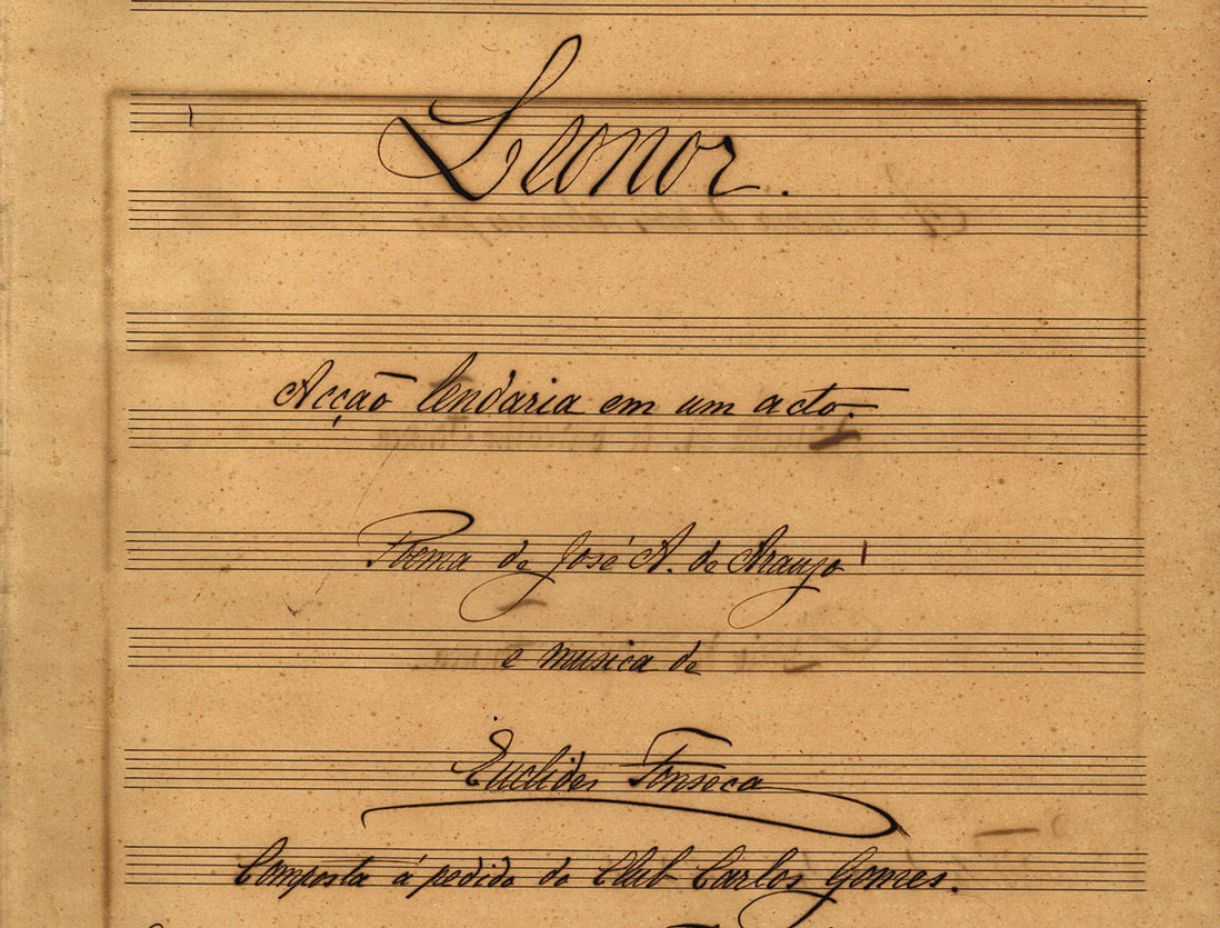 Leonor.
Acção lendaria em um acto.
Poema de José A. de Araujo
e musica de
Euclides Fonseca
Composta á pedido do Club Carlos Gomes.